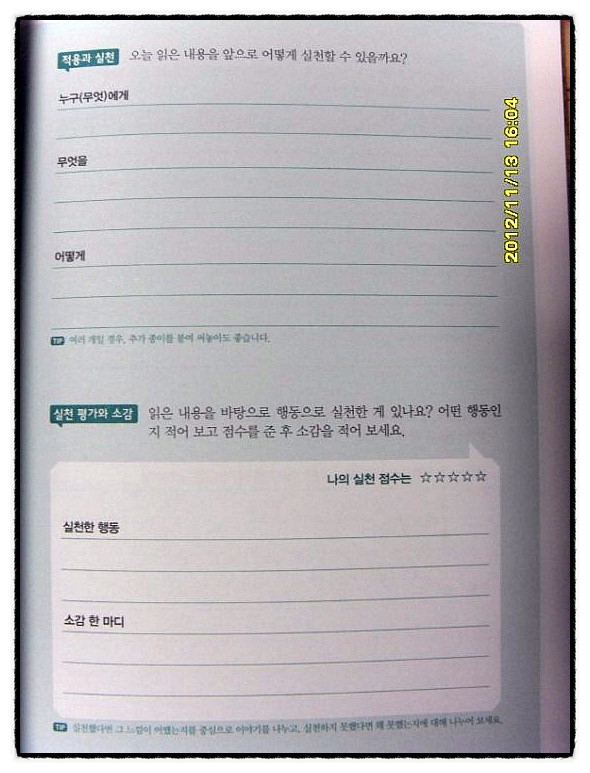 적용과 실천 오늘 읽은 내용을 앞으로 어떻게 실천할 수 있을까요?
누구(무엇)에게
무엇을
어떻게
TIP 여러 개일 경우, 추가 종이를 붙여 써놓아도 좋습니다.
실천 평가와 소감 읽은 내용을 바탕으로 행동으로 실천한 게 있나요? 어떤 행동인
지 적어 보고 점수를 준 후 소감을 적어 보세요.
나의 실천 점수는 ☆☆☆☆☆
실천한 행동
소감 한 마디
TIP 실천했다면 그 느낌이 어땠는지를 중심으로 이야기를 나누고, 실천하지 못했다면 왜 못했는지에 대해 나누어 보세요.
2012/11/13 16:04